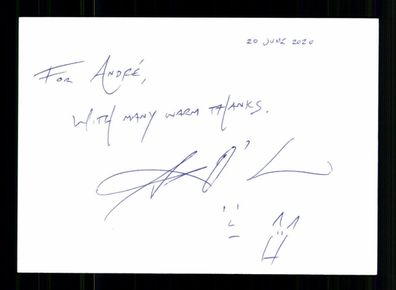 20 JUNE 2020
FOR ANDRÉ,
WITH MANY WARM THANKS.